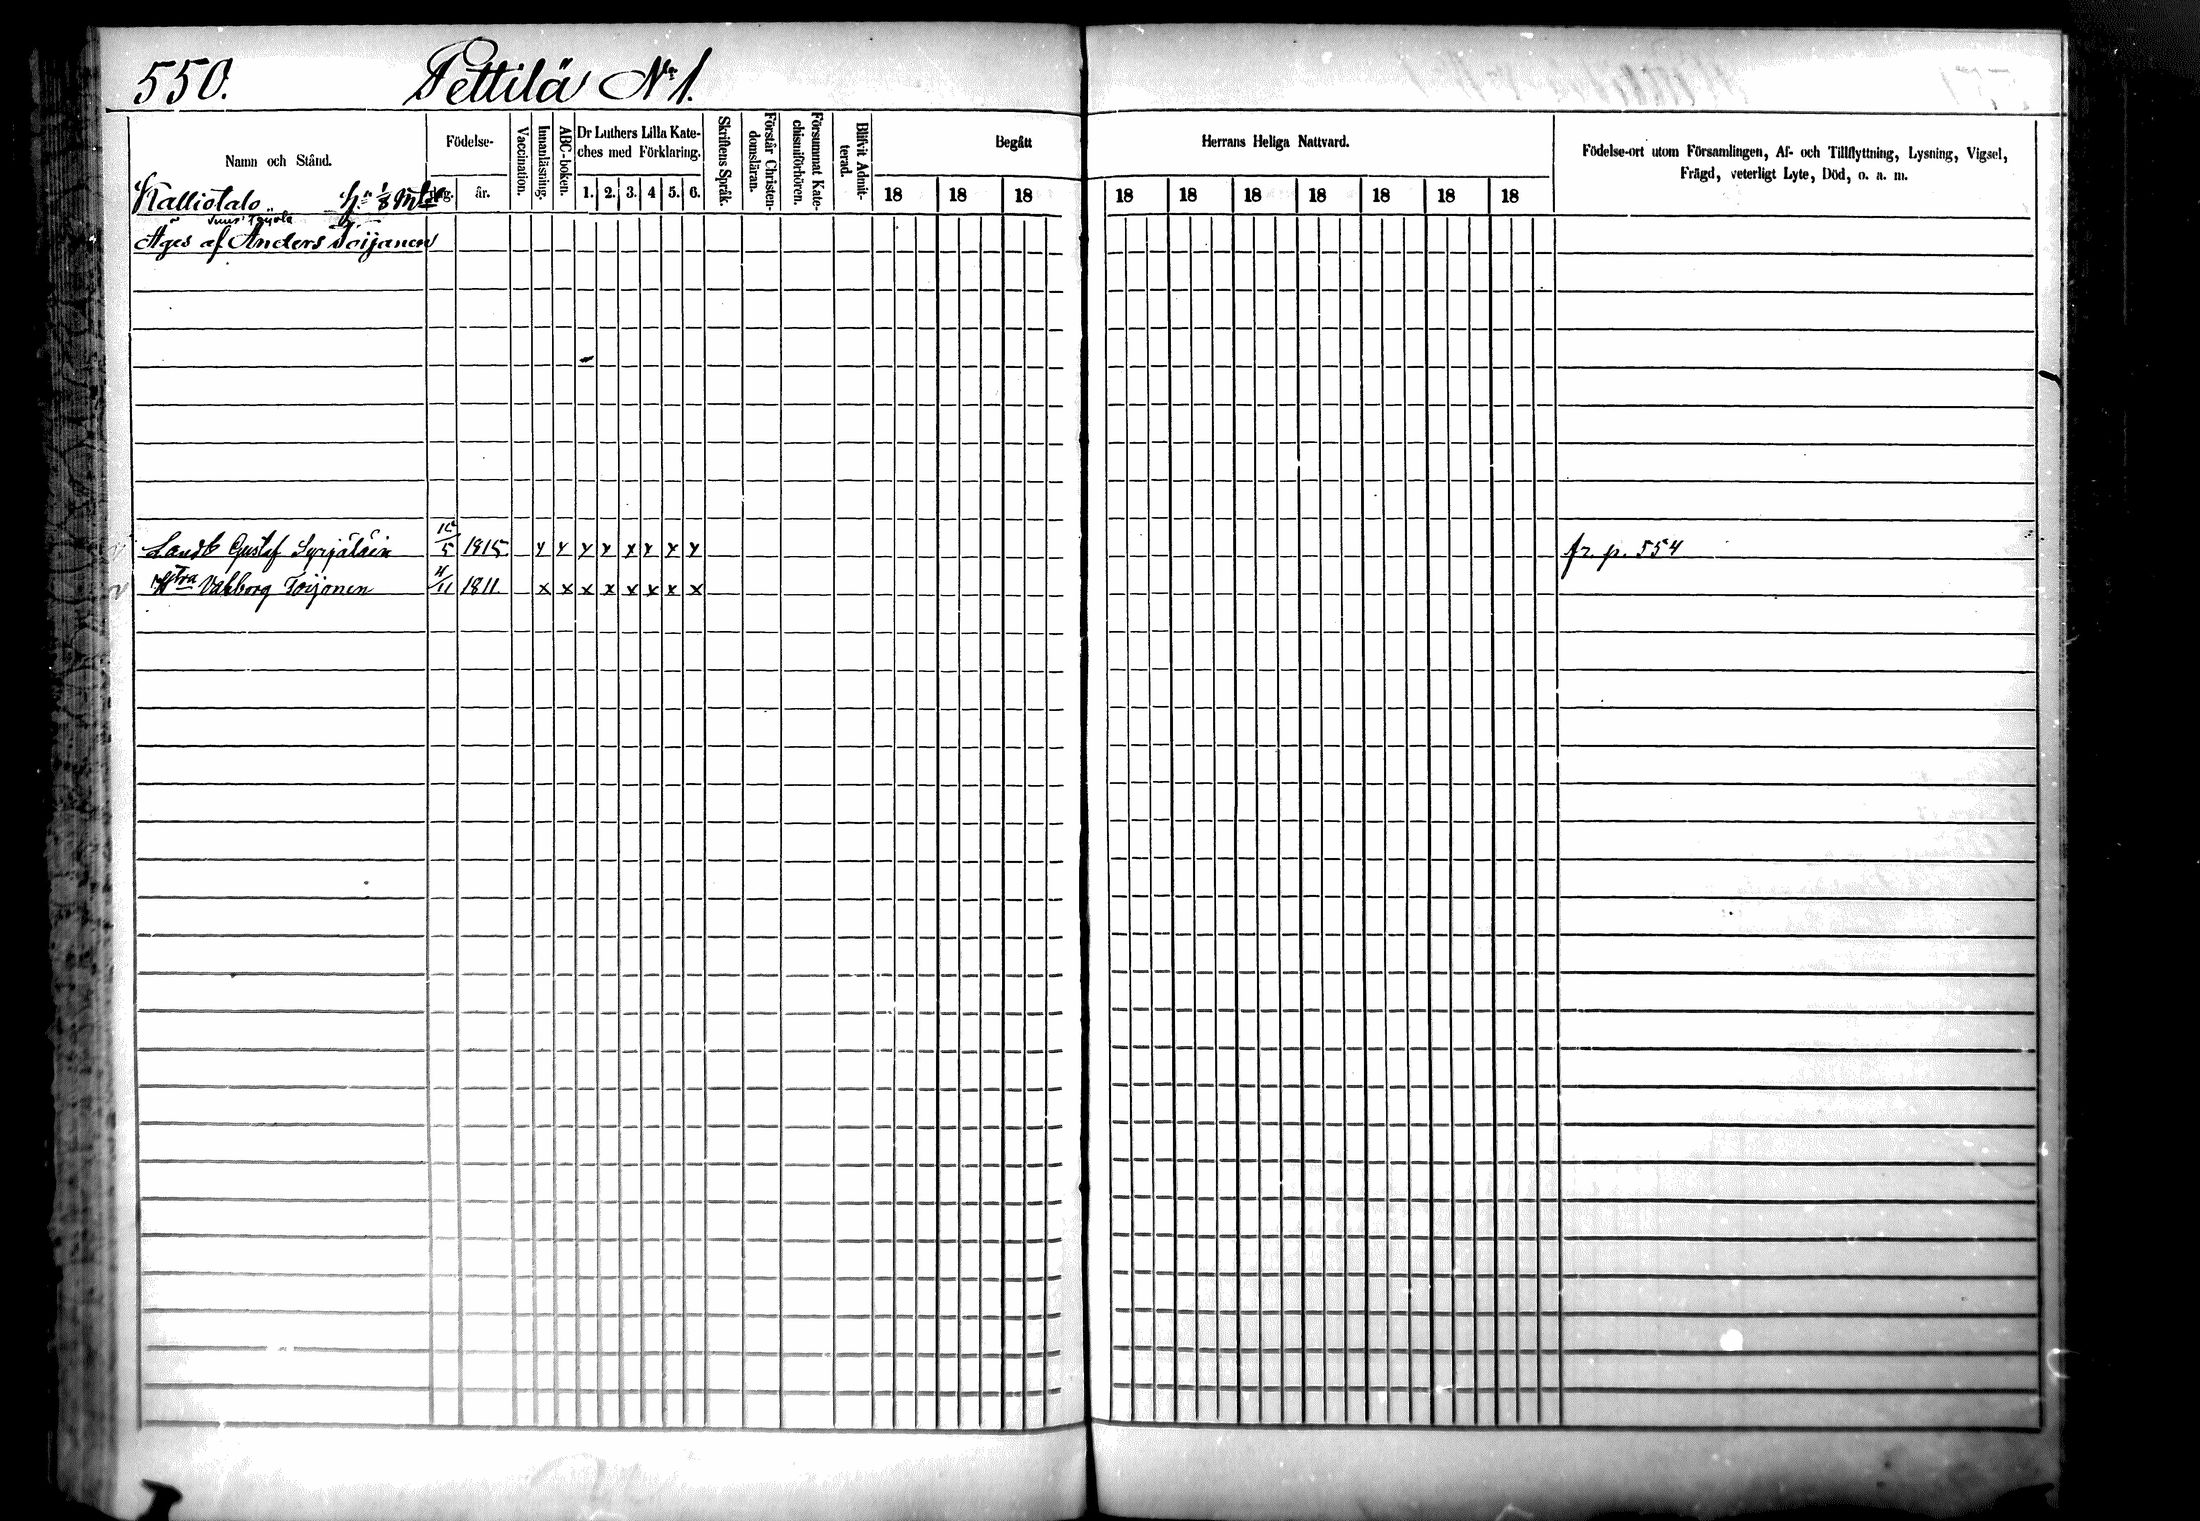 550. Pettilä No 1.
Namn och Stånd.
Födelse-
dag. år.
Vaccination.
Innanläsning.
ABC-boken.
Dr Luthers Lilla Kate-
ches med Förklaring.
1. 2. 3. 4 5. 6.
Skriftens Språk.
Förstår Christen-
domsläran.
Försummat Kate-
chismiförhören.
Blifvit Admit-
terad.
Begått Herrans Heliga Nattvard.
18 18 18 18 18 18 18 18 18 18
Födelse-ort utom Församlingen, Af- och Tillflyttning, Lysning, Vigsel,
Frägd, veterligt Lyte, Död, o. a. m.
Kalliotalo 1/8
Äges af Anders Toijanen
Landb Gustaf Syrjäläin 15/5 1815 x x x x x x x x fr. p. 554
Hstra Valborg Toijonen 4/11 1811. x x x x x x x x